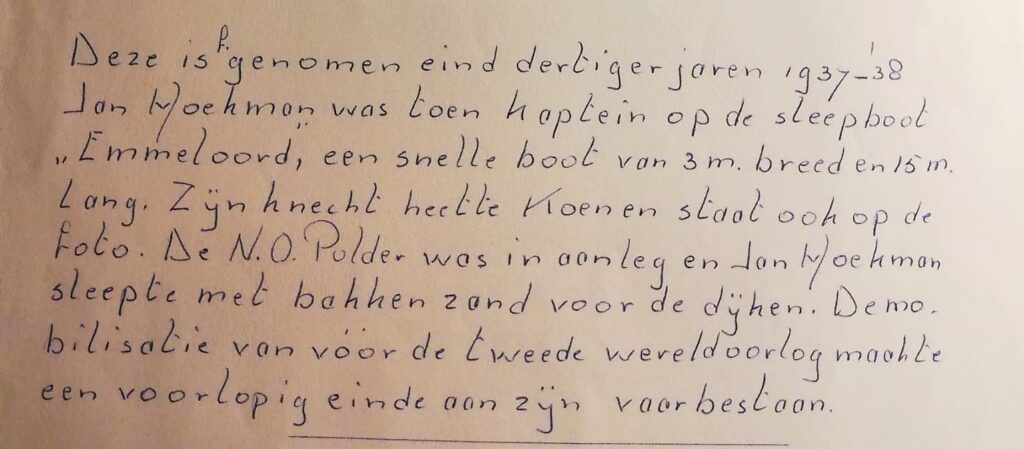 Deze is f. genomen eind dertiger jaren 1937-'38
Jan Moekman was toen kaptein op de sleepboot
„Emmeloord," een snelle boot van 3 m. breed en 15 m.
lang. Zijn knecht heette Koen en staat ook op de
foto. De N.O. Polder was in aanleg en Jan Moekman
sleepte met bakken zand voor de dijken. De mo.
bilisatie van vóór de tweede wereldoorlog maakte
een voorlopig einde aan zijn vaarbestaan.